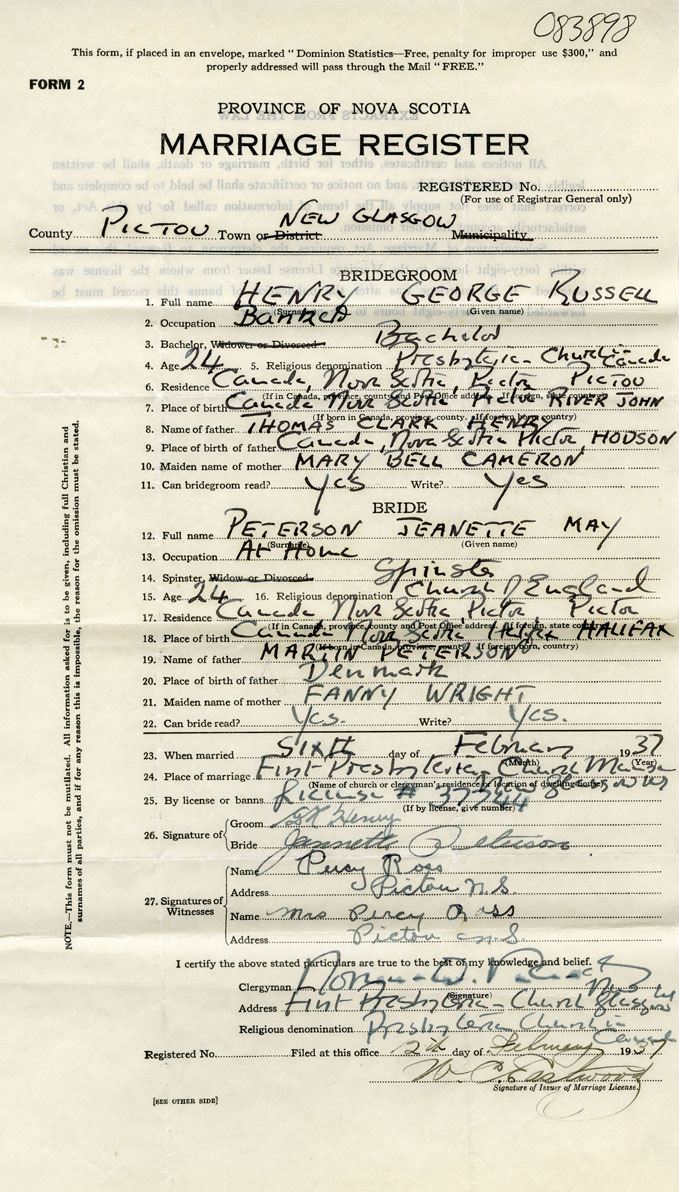 083898
This form, if placed in an envelope, marked "Dominion Statistics—Free, penalty for improper use $300," and
properly addressed will pass through the Mail "FREE."
FORM 2
PROVINCE OF NOVA SCOTIA
MARRIAGE REGISTER
REGISTERED No.
(For use of Registrar General only)
County PICTOU Town or District NEW GLASGOW Municipality
BRIDEGROOM
1. Full name HENRY GEORGE RUSSELL
(Surname) (Given name)
2. Occupation Banker
3. Bachelor, Widower or Divorced Bachelor
4. Age 24 5. Religious denomination Presbyterian Church in Canada
6. Residence Canada, Nova Scotia, Pictou PICTOU
(If in Canada, province, county and Post Office address. If foreign, state country)
7. Place of birth Canada Nova Scotia RIVER JOHN
(If born in Canada, province, county. If foreign born, country)
8. Name of father THOMAS CLARK HENRY
9. Place of birth of father Canada, Nova Scotia Pictou, HODSON
10. Maiden name of mother MARY BELL CAMERON
11. Can bridegroom read? Yes Write? Yes
BRIDE
12. Full name PETERSON JEANETTE MAY
(Surname) (Given name)
13. Occupation At Home
14. Spinster, Widow or Divorced Spinster
15. Age 24 16. Religious denomination Church of England
17. Residence Canada Nova Scotia, Pictou Pictou
(If in Canada, province, county and Post Office address. If foreign, state country)
18. Place of birth Canada Nova Scotia Halifax HALIFAX
(If born in Canada, province, county. If foreign born, country)
19. Name of father MARTIN PETERSON
20. Place of birth of father Denmark
21. Maiden name of mother FANNY WRIGHT
22. Can bride read? Yes. Write? Yes.
23. When married Sixth day of February 1937
(Month) (Year)
24. Place of marriage First Presbyterian Church Manse
(Name of church or clergyman's residence or location of dwelling house)
New Glasgow NS
25. By license or banns License # 37344
(If by license, give number)
26. Signature of
Groom G R Henry
Bride Jeannette Peterson
27. Signatures of Witnesses
Name Percy Ross
Address Pictou N.S.
Name Mrs Percy Ross
Address Pictou N.S.
I certify the above stated particulars are true to the best of my knowledge and belief.
Clergyman Norman W.
(Signature)
Address First Presbyterian Church New Glasgow NS
Religious denomination Presbyterian Church in Canada
Registered No. Filed at this office day of February 1937
Signature of Issuer of Marriage License.
[SEE OTHER SIDE]
NOTE.—This form must not be mutilated. All information asked for is to be given, including full Christian and
surnames of all parties, and if for any reason this is impossible, the reason for the omission must be stated.